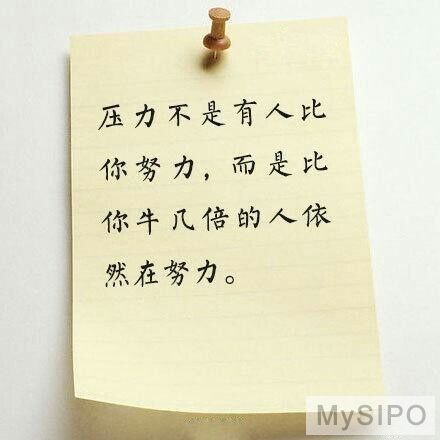 压力不是有人比
你努力，而是比
你牛几倍的人依
然在努力。
MySIPO